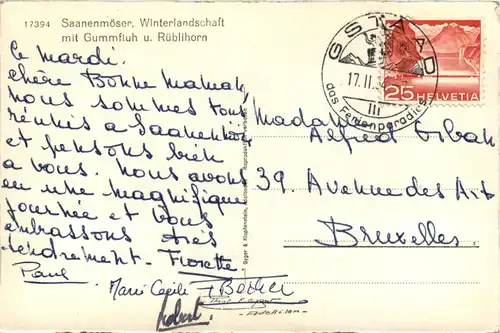 17394 Saanenmöser, Winterlandschaft
mit Gummfluh u. Rüblihorn
GSTAAD
17. II.
das Ferienparadies
III
25 HELVETIA
Ce mardi.
Chère Bonne Maman,
nous sommes tous
réunis à Saanenmöser
et pensons bien
à vous. Nous avons
eu une magnifique
journée et vous
embrassons très
tendrement. Fiorette
Paul
Marie Cécile
Robert.
Madame Alfred
39. Avenue des Arts
Bruxelles.